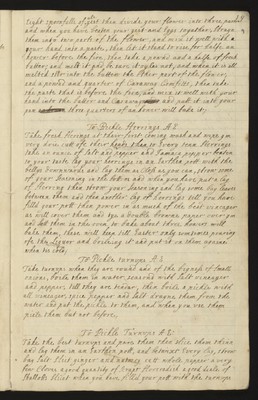 eight spoonfulls of yest then divide your flower into three parts
and when you have beaten your yest and Eggs together, strain
them into two parts of the flower, and mix it well with
your hand into a paste, then let it stand to rise for halfe an
hower before the fire, then take a pound and a halfe of fresh
butter, and melt it and be sure it boyles not, and when it is all
melted stir into the butter the other part of the flower,
and a pound and quarter of Caraway Comfitts, then take
the paste that is before the fire, and mix it well with your
hand into the butter and Caraways and put it into your
pan three quarters of an hower will bake it,
To Pickle Herrings A:S
Take fresh Herings at their first coming in and wipe them
very dry, cut off their heads, then to every ten Herrings
take an ounce of Salt and pepper and Jamaca pepper beaten
to your taste lay your herrings in an Earthen pott with the
bellys downwards and lay them as close as you can, strew some
of your Seasoning in the bottom and when you have put a lay
of Herring then strew your Seasoning and lay some bay leaves
between them and then another lay of herrings till you have
filled your pott then power in as much of the best vinegar
as will cover them and tye a double brown paper over 'em
and set them in the oven to bake about three howers will
bake them, these will keep halfe a year only sometimes pouring
of the Liquor and boileing it and put it on them again
when tis cold,
To Pickle turneps A:S
Take turneps when they are round and of the bigness of small
onions, boile them in water seasoned with Salt vinegar
and pepper, till they are tender, then boile a pickle with
all vinegar, spice pepper and Salt drayne them from the
water and put the pickle to them, and when you use them
pick them but not before,
To Pickle Turneps A:S:
Take the best turneps and pare them then slice them thin
and lay them in an Earthen pott, and between every lay, strew
bay Salt Slict ginger and nutmeg cut whole pepper a very
few Cloves a good quantity of Sugar
when you have filled your pott with the turneps